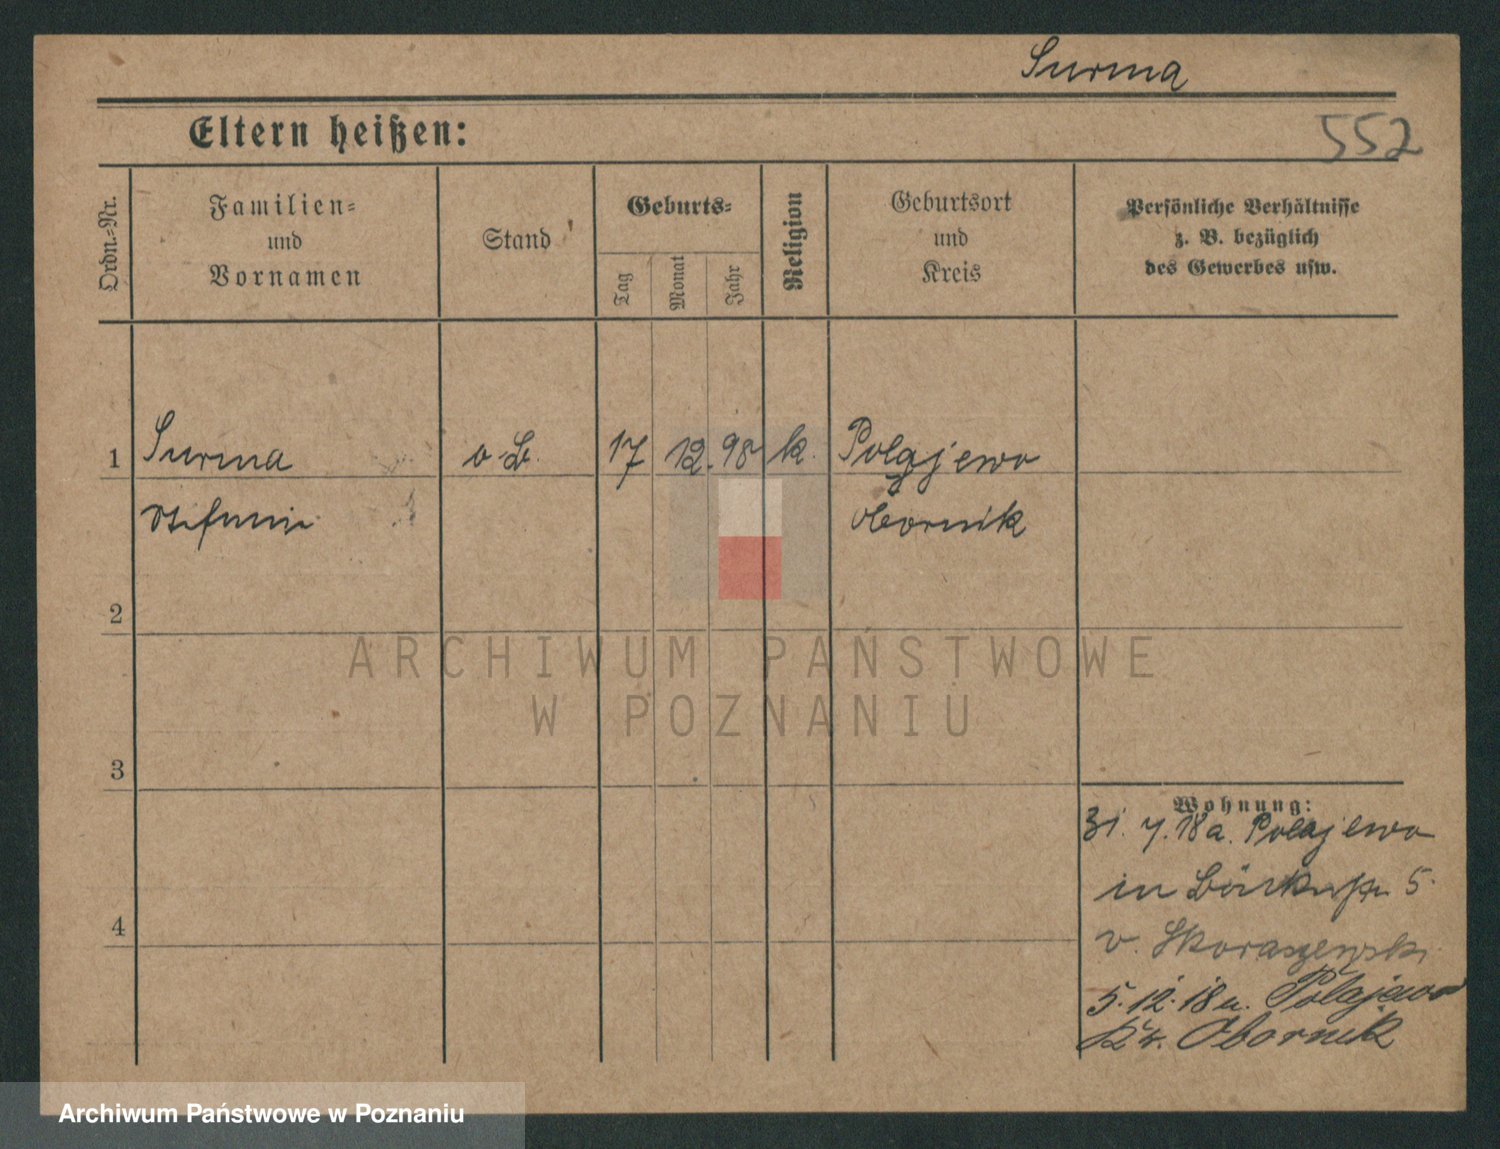 Surma
Eltern heißen:
552
Ordn.-Nr.
Familien-
und
Vornamen
Stand
Geburts-
Tag
Monat
Jahr
Religion
Geburtsort
und
Kreis
Persönliche Verhältnisse
z. B. bezüglich
des Gewerbes usw.
1
Surma
o. B.
17
12.
98
k.
Polajewo
Stefanie
Obornik
2
ARCHIWUM PAŃSTWOWE
W POZNANIU
3
Wohnung:
31. 7. 18 a. Polajewo
in 5.
v. Skoraszewski
4
5. 12. 18 n. Polajewo
Kr. Obornik
Archiwum Państwowe w Poznaniu